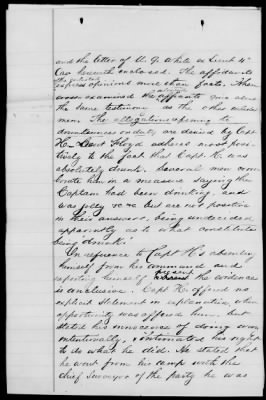 and the letter of U. G. White 1st Lieut 4th
Cav herewith enclosed. The affidavits
express opinions more than facts. When
cross examined the affiants give about
the same testimony as the other enlisted
men. The allegations referring to
drunkenness on duty are denied by Capt
H. Lieut Floyd adheres most pos-
itively to the fact that Capt. H. was
absolutely drunk. Several men corro-
borate him in a measure saying the
Captain had been drinking, and
was jolly &c &c but are not positive
in their answers, being undecided
apparently as to what constitutes
being drunk.
In reference to Capt H's absenting
himself from his command and
reporting himself present the evidence
is conclusive. Capt H. offered no
explicit statement in explanation, when
opportunity was afforded him, but
stated his innocence of doing wrong
intentionally, & intimated his right
to do what he did. He stated that
he went from his camp with the
chief Surveyor of the party he was